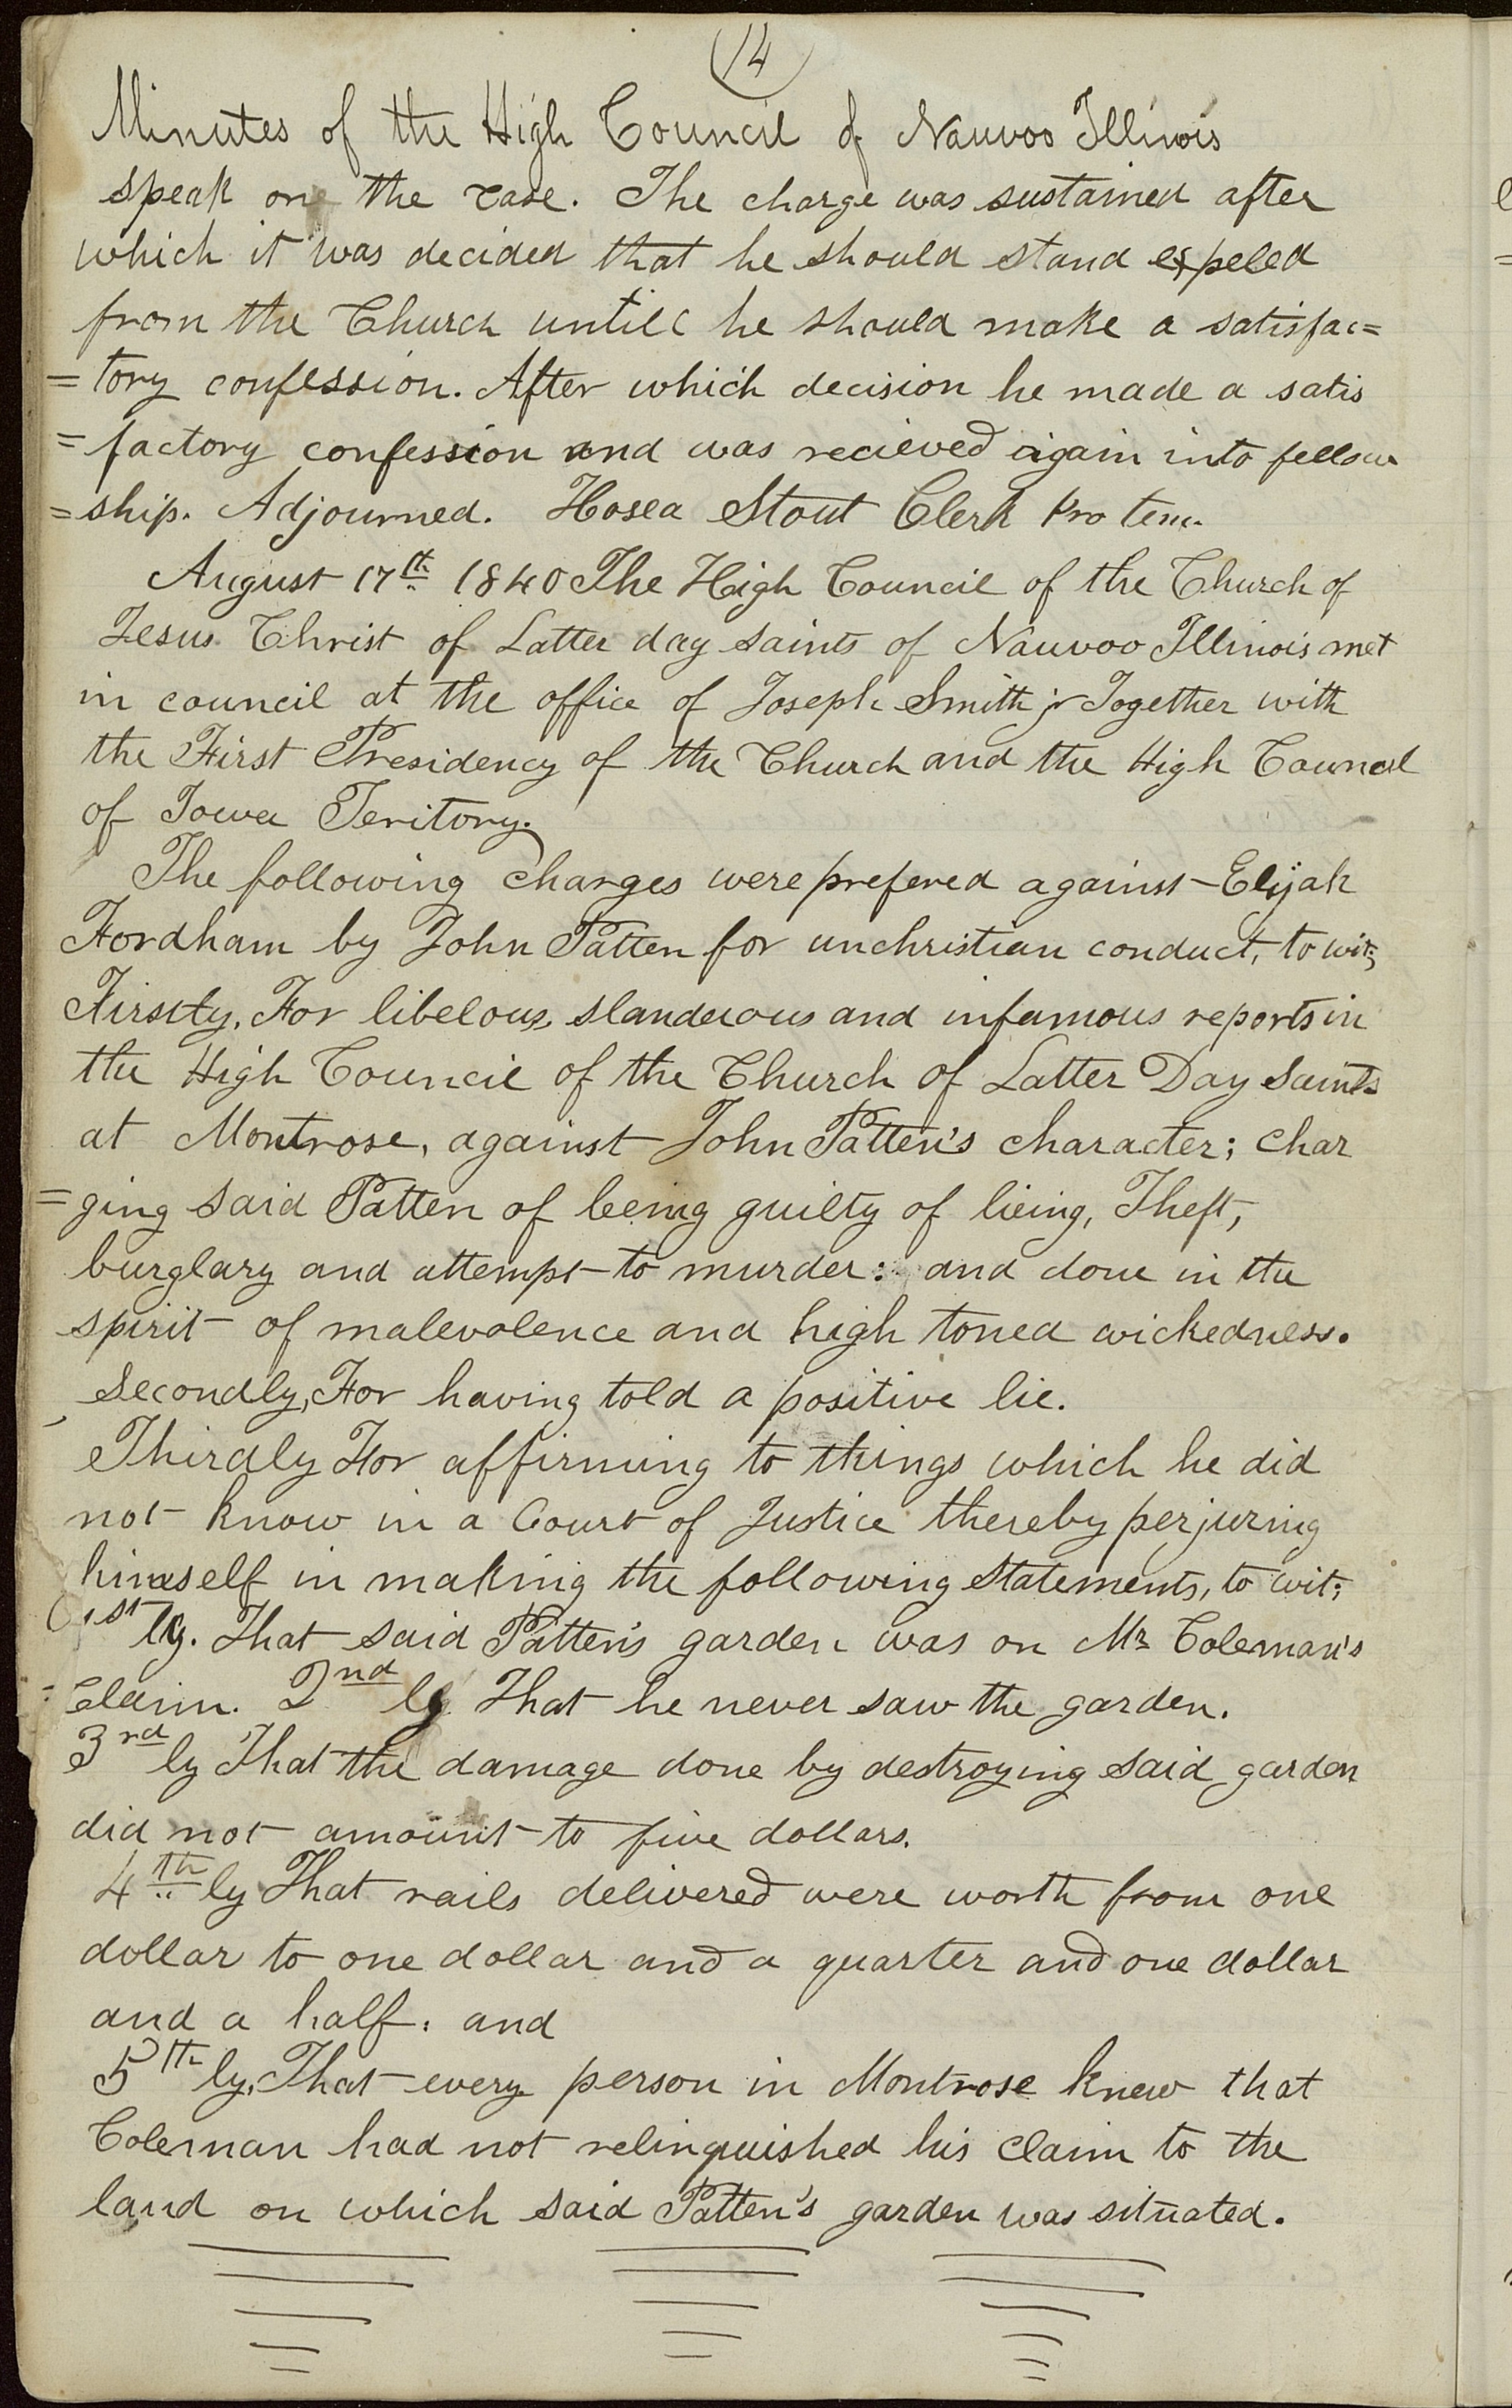 14
Minutes of the High Council of Nauvoo Illinois
speak on the case. The charge was sustained after
which it was decided that he should stand expeled
from the Church untill he should make a satisfac=
=tory confession. After which decision he made a satis
=factory confession and was recieved again into fellow
=ship. Adjourned. Hosea Stout Clerk Pro tem.
August 17th 1840 The High Council of the Church of
Jesus Christ of Latter day saints of Nauvoo Illinois met
in council at the office of Joseph Smith jr Together with
the First Presidency of the Church and the High Council
of Iowa Teritory.
The following charges were prefered against Elijah
Fordham by John Patten for unchristian conduct, to wit;
Firstly, For libelous, slanderous and infamous reports in
the High Council of the Church of Latter Day Saints
at Montrose, against John Patten's character; char
=ging said Patten of being guilty of lieing, Theft,
burglary and attempt to murder: and done in the
spirit of malevolence and high toned wickedness.
Secondly, For having told a positive lie.
Thirdly For affirming to things which he did
not know in a Court of Justice thereby perjuring
himself in making the following statements, to wit;
1st ly. That said Patten's garden was on Mr Coleman's
Claim. 2nd ly That he never saw the garden.
3rd ly That the damage done by destroying said garden
did not amount to five dollars.
4th ly That rails delivered were worth from one
dollar to one dollar and a quarter and one dollar
and a half. and
5th ly, That every person in Montrose knew that
Coleman had not relinquished his claim to the
land on which said Patten's garden was situated.